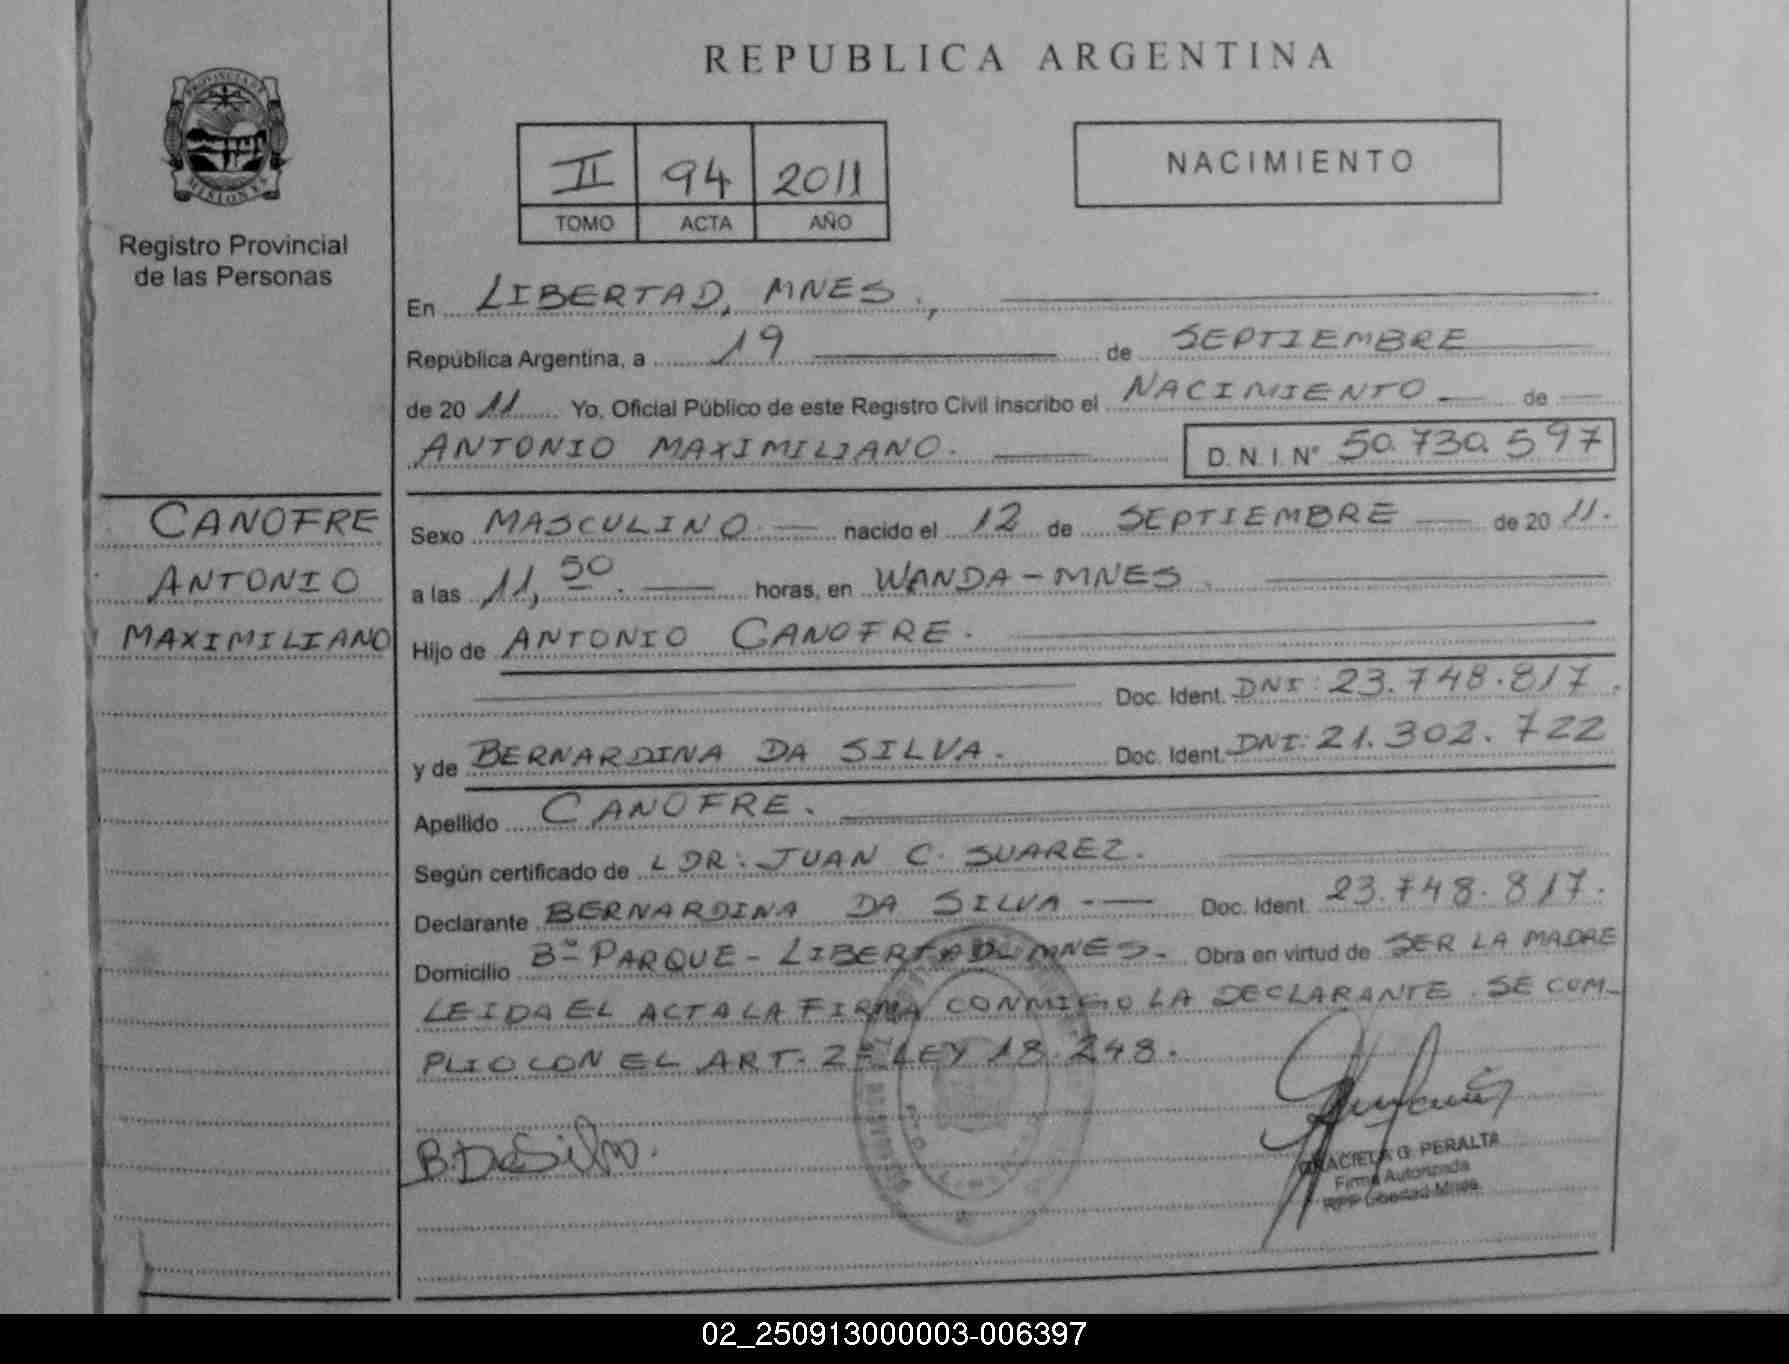 REPUBLICA ARGENTINA
PROVINCIA DE
MISIONES
Registro Provincial
de las Personas
II 94 2011
TOMO ACTA AÑO
NACIMIENTO
En LIBERTAD, MNES.,
República Argentina, a 19 de SEPTIEMBRE
de 20 11 Yo, Oficial Público de este Registro Civil inscribo el NACIMIENTO de
ANTONIO MAXIMILIANO. D.N.I. N° 50.730.597
CANOFRE
ANTONIO
MAXIMILIANO
Sexo MASCULINO. nacido el 12 de SEPTIEMBRE de 20 11.
a las 11,50. horas, en WANDA-MNES.
Hijo de ANTONIO CANOFRE.
Doc. Ident. DNI: 23.748.817.
y de BERNARDINA DA SILVA. Doc. Ident. DNI: 21.302.722
Apellido CANOFRE.
Según certificado de LDR. JUAN C. SUAREZ.
Declarante BERNARDINA DA SILVA Doc. Ident. 23.748.817.
Domicilio Bº PARQUE - LIBERTAD MNES. Obra en virtud de SER LA MADRE
LEIDA EL ACTA LA FIRMA CONMIGO LA DECLARANTE. SE COM-
PLIO CON EL ART. 2º LEY 18.248.
B. Da Silva.
GRACIELA G. PERALTA
Firma Autorizada
RPP Libertad Mnes.
02_250913000003-006397